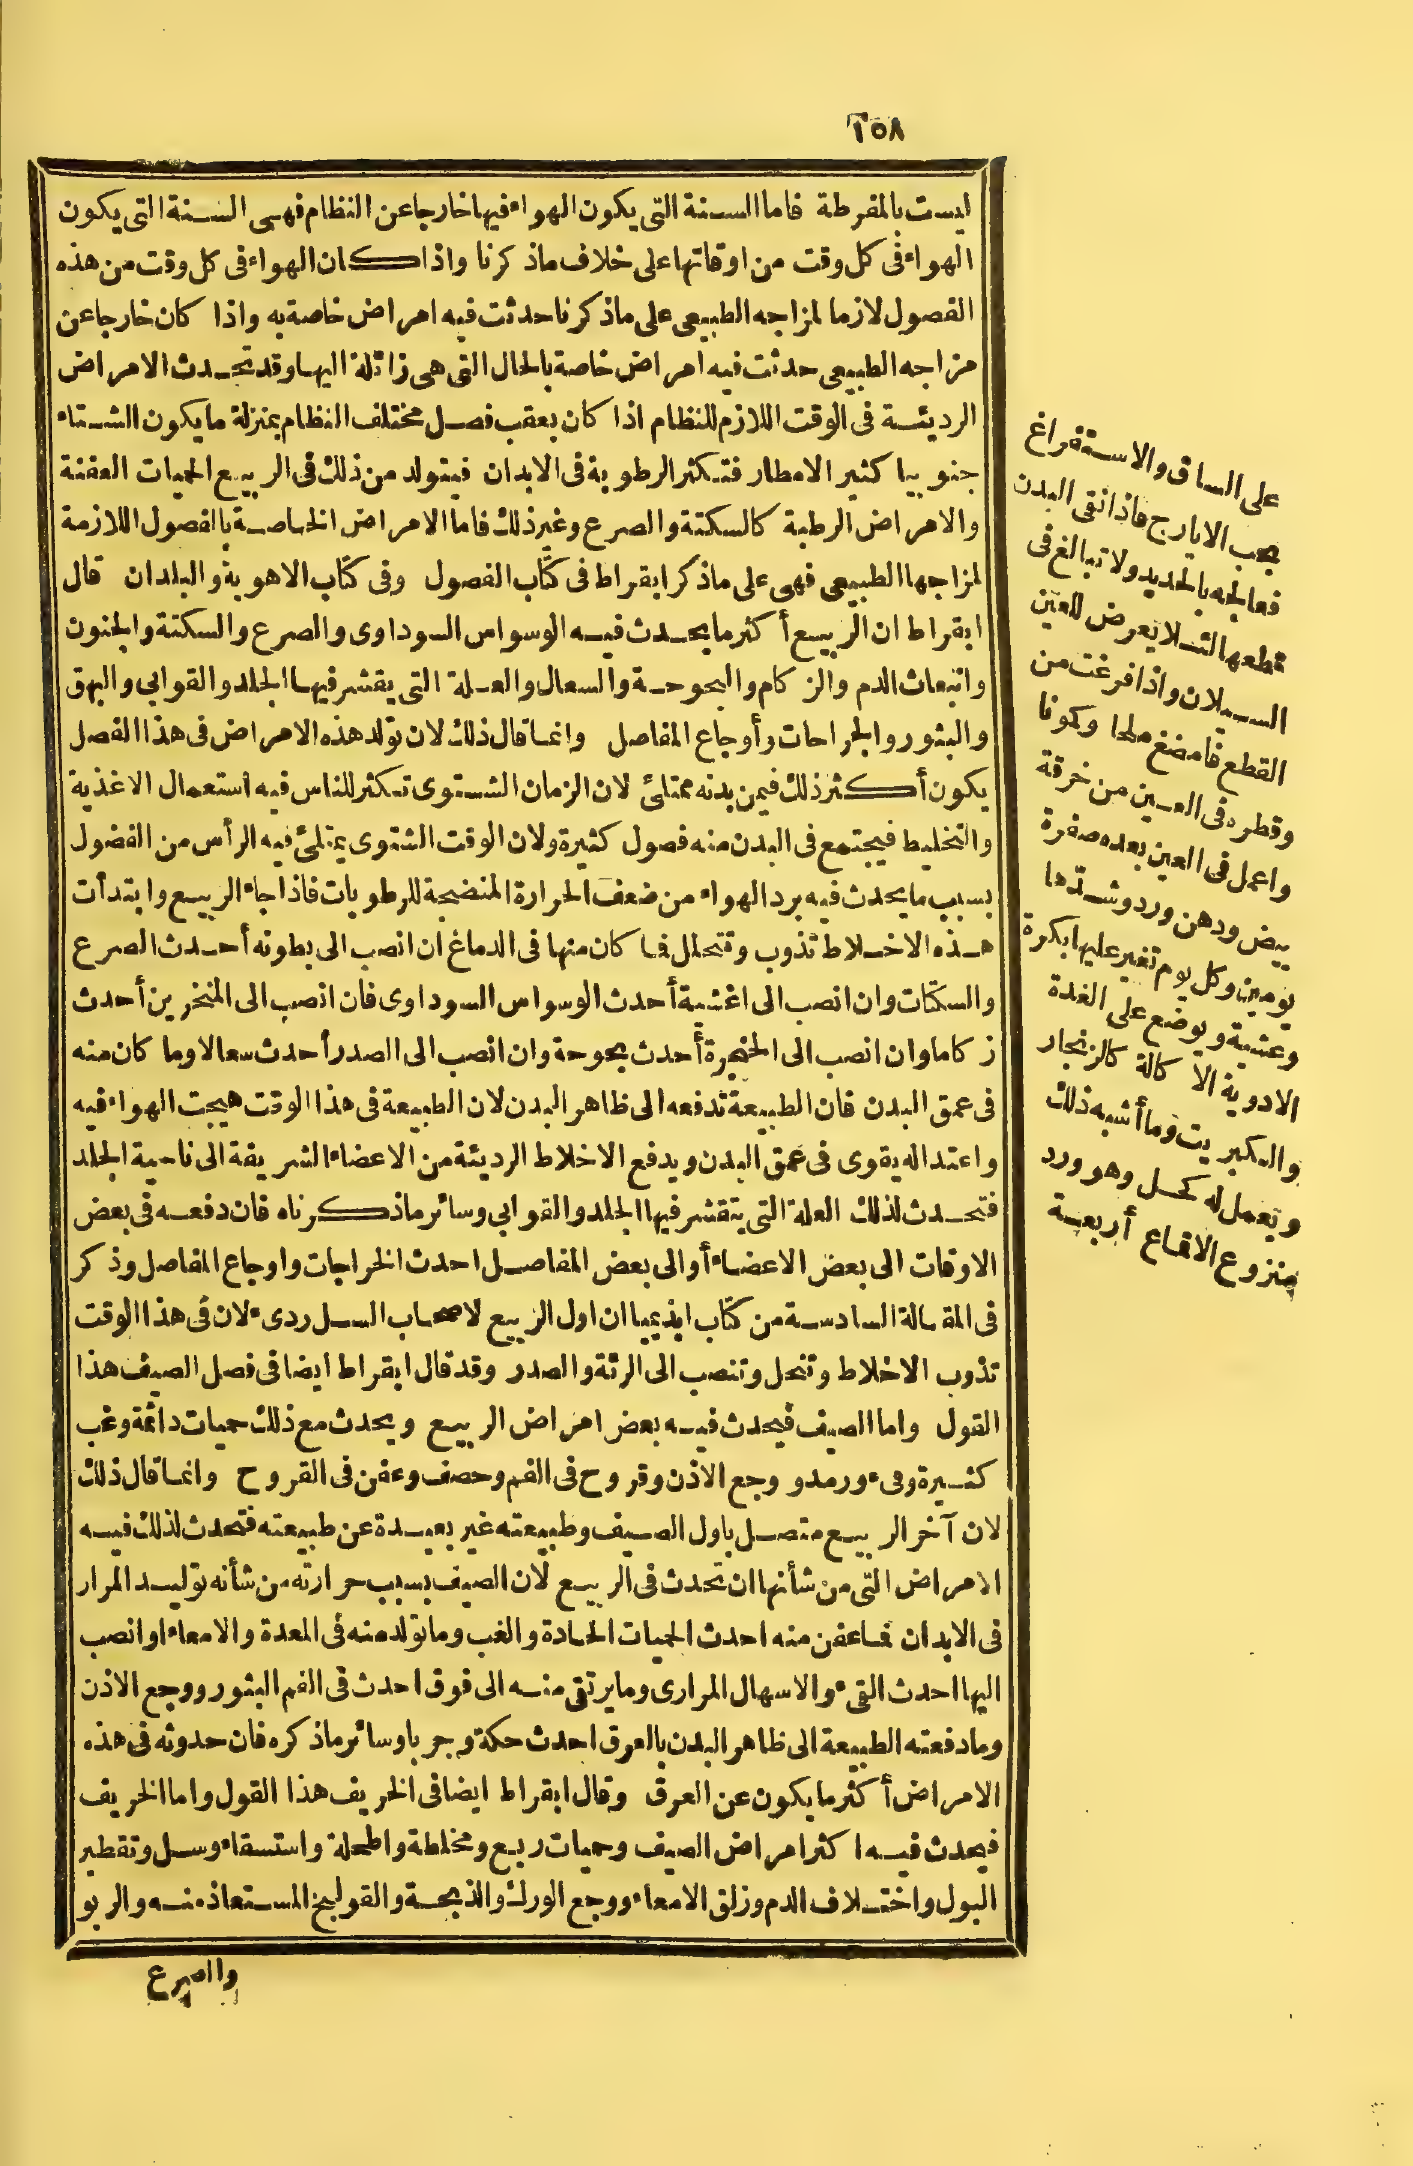 ٢٥٨
ليست بالمفرطة فاما السنة التى يكون الهواء فيها خارجا عن النظام فهى السنة التى يكون
الهواء فى كل وقت من اوقاتها على خلاف ماذكرنا واذا كان الهواء فى كل وقت من هذه
الفصول لازما لمزاجه الطبيعى على ماذكرنا حدثت فيه امراض خاصة به واذا كان خارجا عن
مزاجه الطبيعى حدثت فيه امراض خاصة بالحال التى هى زائلة اليها وقد تحدث الامراض
الرديئة فى الوقت اللازم للنظام اذا كان يعقب فصل مختلف النظام بمنزلة ما يكون الشتاء
جنوبيا كثير الامطار فتكثر الرطوبة فى الابدان فيتولد من ذلك فى الربيع الحميات العفنة
والامراض الرطبة كالسكتة والصرع وغير ذلك فاما الامراض الخاصة بالفصول اللازمة
لمزاجها الطبيعى فهى على ماذكر ابقراط فى كتاب الفصول وفى كتاب الاهوية والبلدان قال
ابقراط ان الربيع أكثر ما يحدث فيه الوسواس السوداوى والصرع والسكتة والجنون
وانبعاث الدم والزكام والبحوحة والسعال والعلة التى يقشر فيها الجلد والقوابى والبهق
والبثور والجراحات وأوجاع المفاصل وانما قال ذلك لان تولد هذه الامراض فى هذا الفصل
يكون أكثر ذلك فيمن بدنه ممتلئ لان الزمان الشتوى تكثر للناس فيه استعمال الاغذية
والتخليط فيجتمع فى البدن منه فصول كثيرة ولان الوقت الشتوى يمتلئ فيه الرأس من الفضول
بسبب ما يحدث فيه برد الهواء من ضعف الحرارة المنضجة للرطوبات فاذا جاء الربيع وابتدأت
هذه الاخلاط تذوب وتتحلل فما كان منها فى الدماغ ان انصب الى بطونه أحدث الصرع
والسكات وان انصب الى اغشية أحدث الوسواس السوداوى فان انصب الى المنخرين أحدث
زكاما وان انصب الى الحنجرة أحدث بحوحة وان انصب الى الصدر أحدث سعالا وما كان منه
فى عمق البدن فان الطبيعة تدفعه الى ظاهر البدن لان الطبيعة فى هذا الوقت هيجت الهواء فيه
واعتداله يقوى فى عمق البدن ويدفع الاخلاط الرديئة من الاعضاء الشريفة الى ناحية الجلد
فتحدث لذلك العلة التى يتقشر فيها الجلد والقوابى وسائر ماذكرناه فان دفعه فى بعض
الاوقات الى بعض الاعضاء أوالى بعض المفاصل احدث الخراجات واوجاع المفاصل وذكر
فى المقالة السادسة من كتاب ابذيميا ان اول الربيع لاصحاب السل ردىء لان فى هذا الوقت
تذوب الاخلاط وتنحل وتنصب الى الرئة والصدر وقد قال ابقراط ايضا فى فصل الصيف هذا
القول واما الصيف فيحدث فيه بعض امراض الربيع ويحدث مع ذلك حميات دائمة وغب
كثيرة وقىء ورمد و وجع الاذن وقروح فى الفم وحصف وعفن فى القروح وانما قال ذلك
لان آخر الربيع متصل باول الصيف وطبيعته غير بعيدة عن طبيعته فتحدث لذلك فيه
الامراض التى من شأنها ان تحدث فى الربيع لان الصيف بسبب حرارته من شأنه توليد المرار
فى الابدان فما عفن منه احدث الحميات الحادة والغب وما تولد منه فى المعدة والامعاء اوانصب
اليها احدث القىء والاسهال المرارى وما يرتقى منه الى فوق احدث فى الفم البثور ووجع الاذن
وما دفعته الطبيعة الى ظاهر البدن بالعرق احدث حكة وجربا وسائر ماذكره فان حدوثه فى هذه
الامراض أكثر ما يكون عن العرق وقال ابقراط ايضا فى الخريف هذا القول واما الخريف
فيحدث فيه اكثر امراض الصيف وحميات ربع ومخلطة واطحلة واستسقاء وسل وتقطير
البول واختلاف الدم وزلق الامعاء ووجع الورك والذبحة والقولنج المستعاذ منه والربو
والصرع
على الساق والاستفراغ
بحب الايارج فاذا نقى البدن
فعالجه بالحديد ولا تبالغ فى
قطعها لئلا يعرض للعين
السيلان واذا فرغت من
القطع فامضغ ملحا وكمونا
وقطره فى العين من خرقة
واعمل فى العين بعده صفرة
بيض ودهن ورد وشدها
يومين وكل يوم تغير عليها بكرة
وعشية ويوضع على الغدة
الادوية الاكالة كالزنجار
والكبريت وما أشبه ذلك
وتعمل له كحل وهو ورد
منزوع الاقماع أربعة